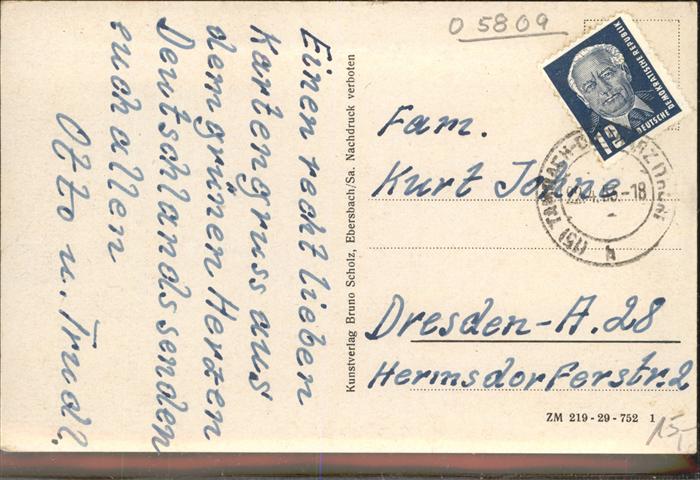 O 5809
Einen recht lieben
Kartengruss aus
dem grünen Herzen
Deutschlands senden
euch allen
Otto u. Trudl.
Kunstverlag Bruno Scholz, Ebersbach/Sa. Nachdruck verboten
DEUTSCHE
DEMOKRATISCHE REPUBLIK
12
Fam.
Kurt Jähne
Dresden-A. 28
Hermsdorferstr. 2
ZM 219-29-752 1
15,-